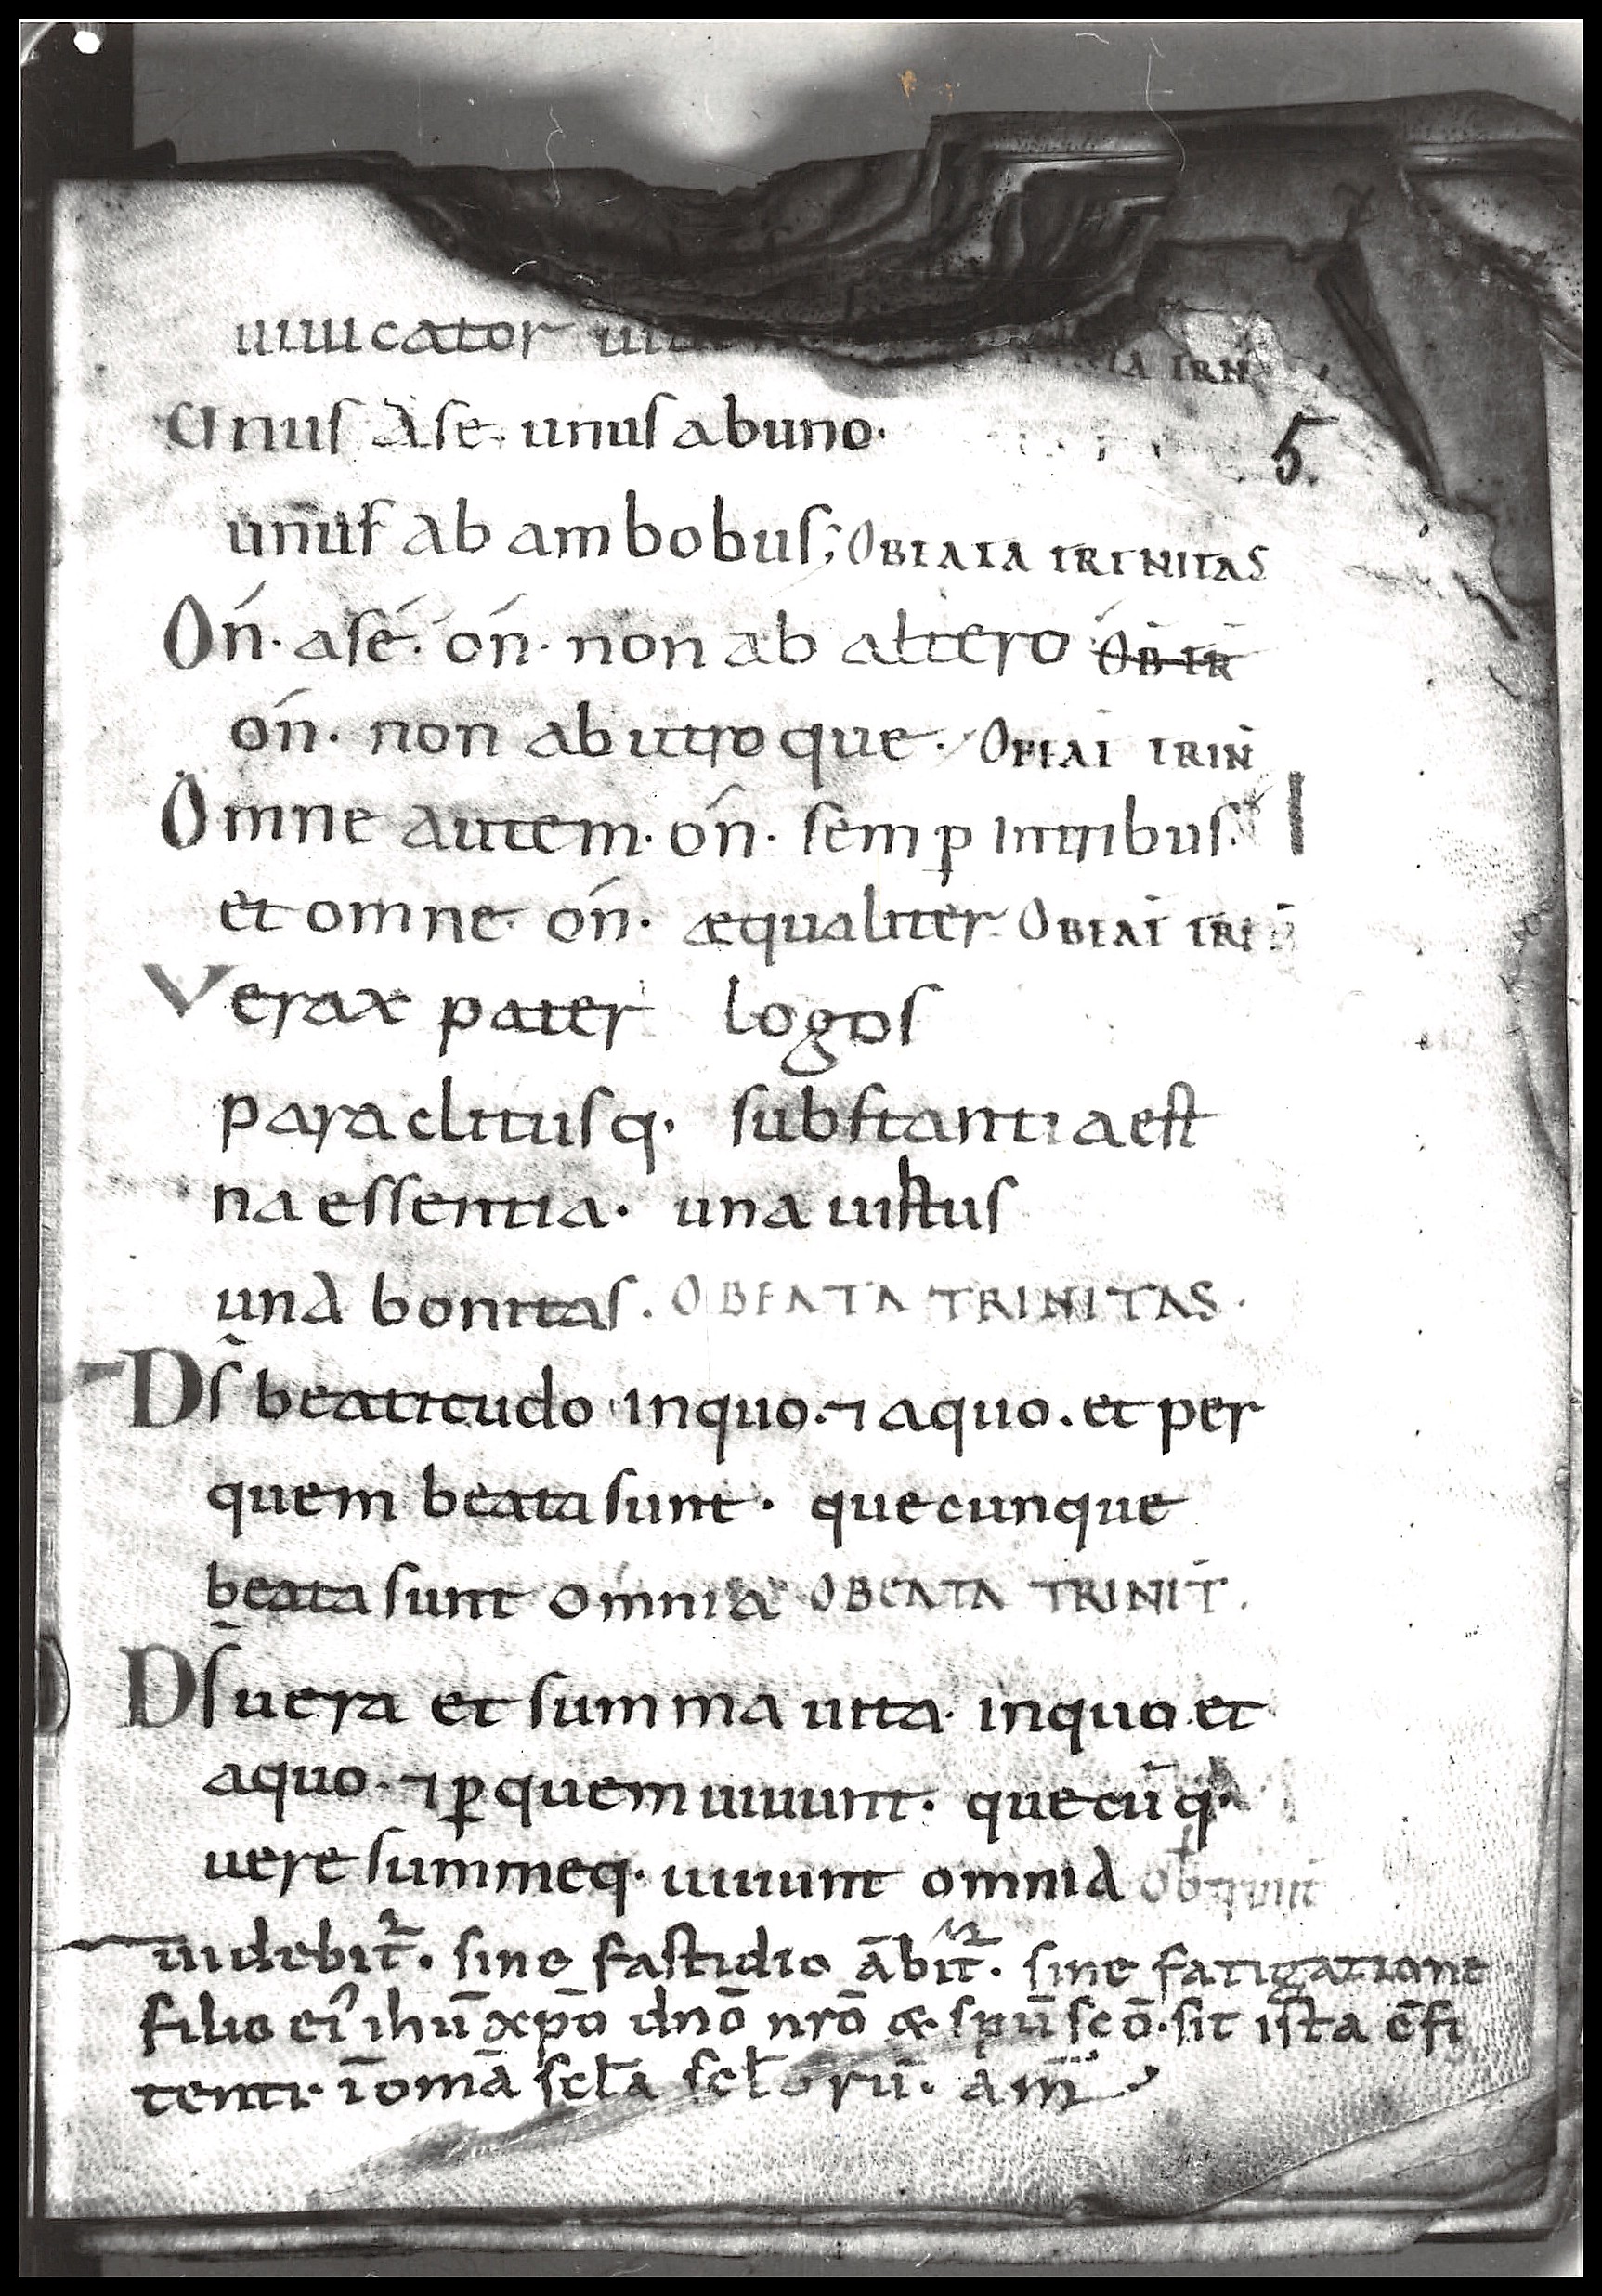 uiuicator
A TRN
Unus a se. unus ab uno.
5.
unus ab ambobus; O BEATA TRINITAS
Ón. a sé. ón. non ab altero O B TR
ón. non ab utroque. O BEAT TRIN
Omne autem. ón. semp in tribus.
et omne. ón. æqualiter. O BEAT TRI
Verax pater logos
paraclitusq. substantia est
na essentia. una uirtus
una bonitas. O BEATA TRINITAS.
Ds̄ beatitudo in quo. ⁊ a quo. et per
quem beata sunt. quecunque
beata sunt omnia O BEATA TRINIT.
Ds̄ uera et summa uita. in quo et
a quo. ⁊ ꝑ quem uiuunt. quecū q.
vere summeq. uiuunt omnia
uidebit᷑. sine fastidio āb̄it᷑. sine fatigatione
filio eiꝰ ihū xp̄o dn̄o nr̄o & spū sc̄o. sit ista c̄fi
tenti. ī om̄a scl̄a scl̄orū. am̄